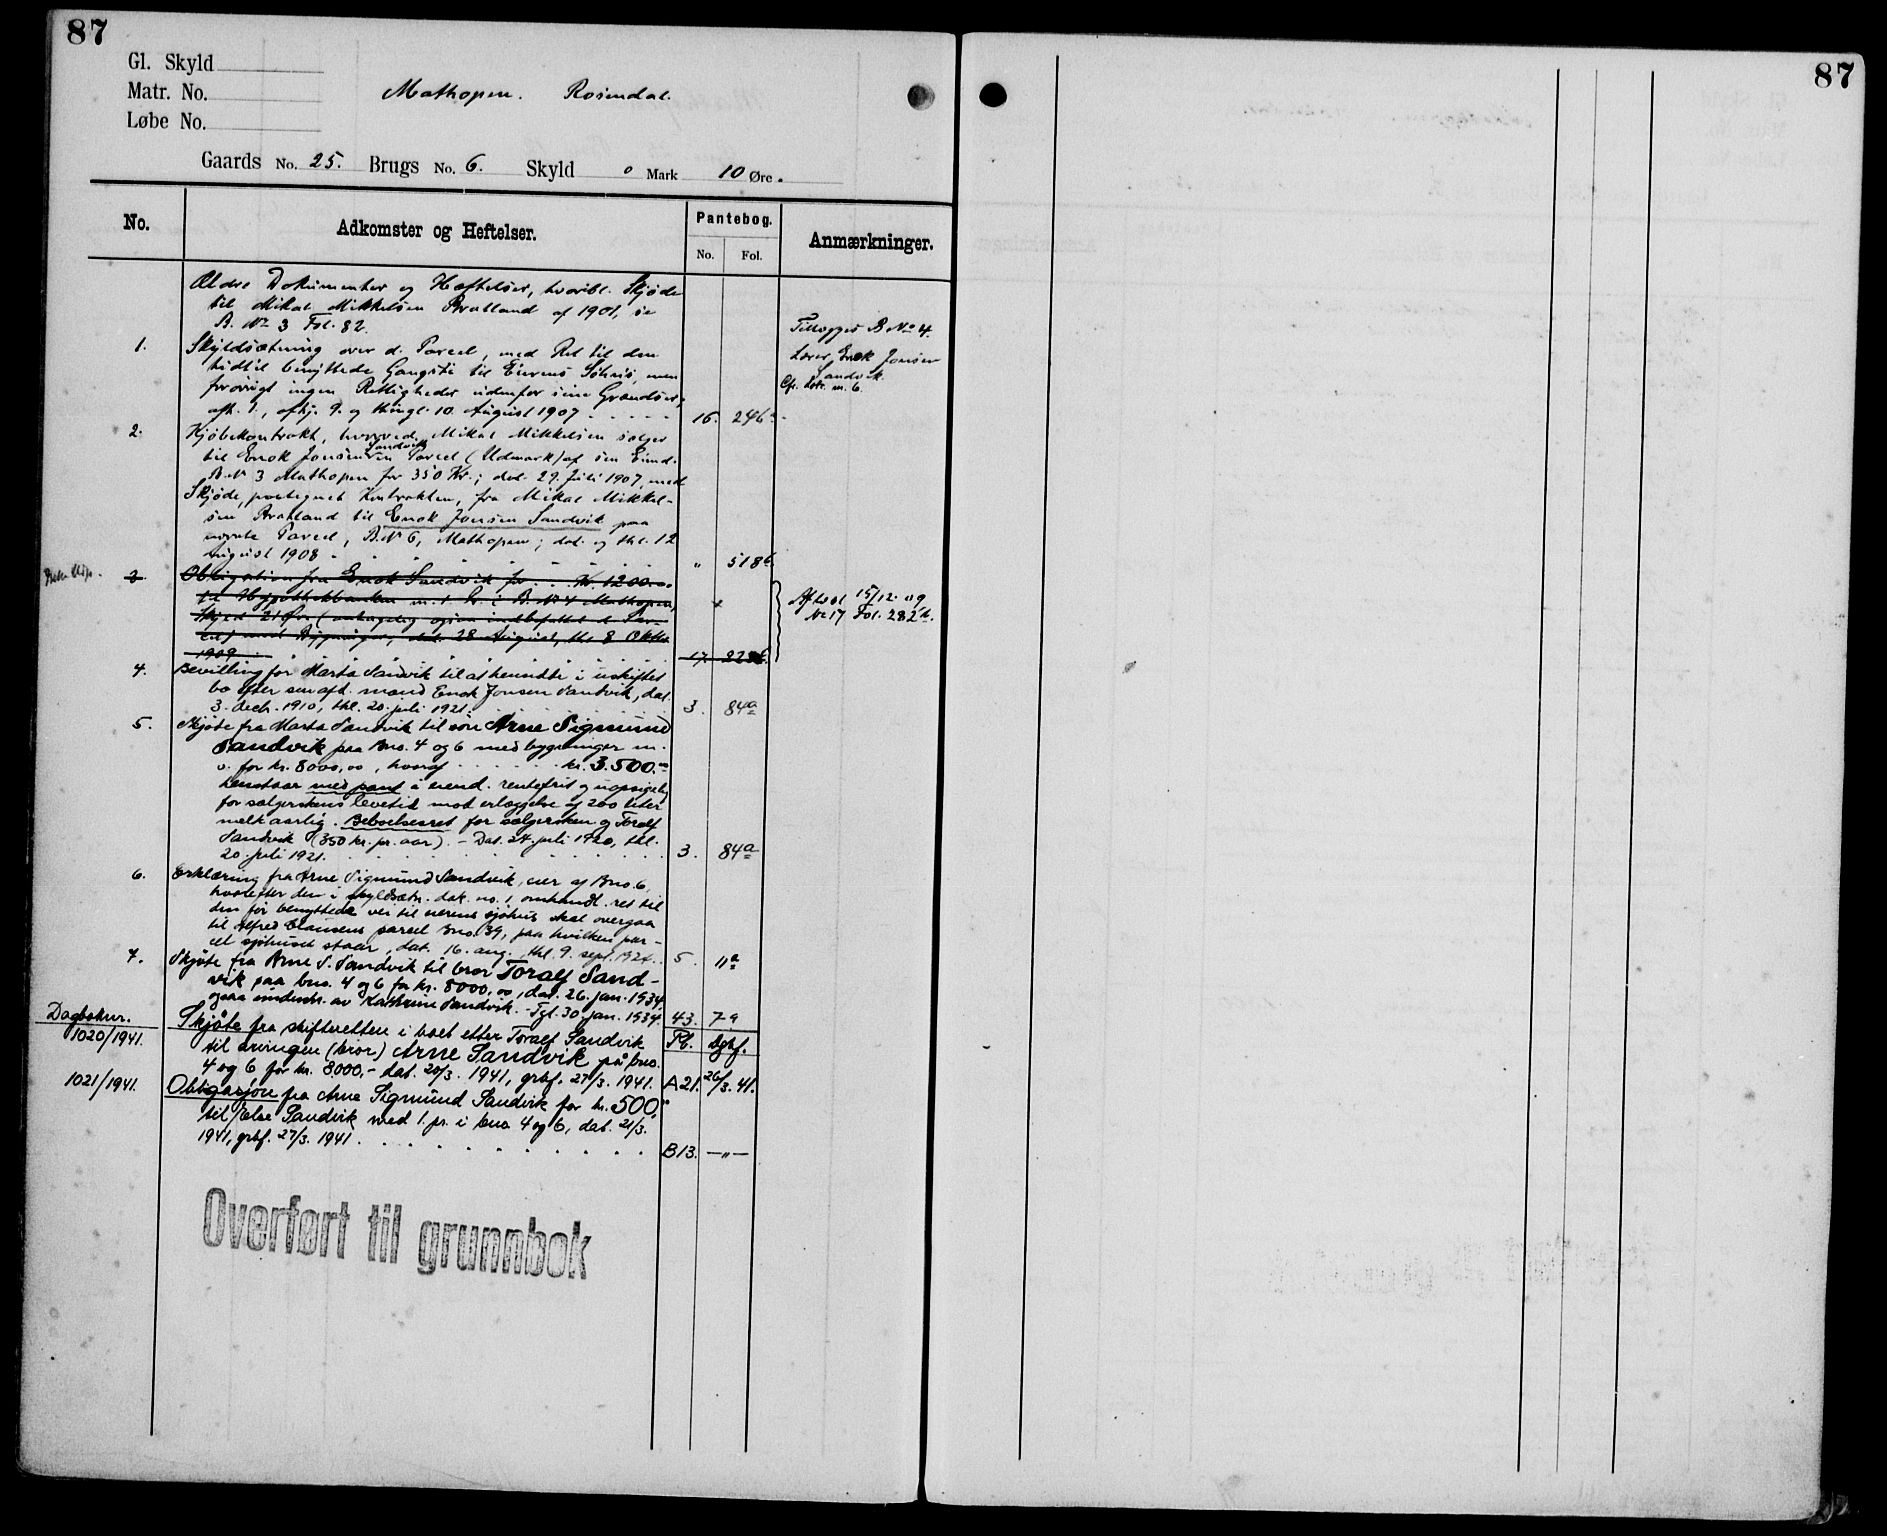 87
87
Gl. Skyld
Matr. No.
Løbe No.
Mathopen. Rosendal.
Gaards No. 25. Brugs No. 6. Skyld 0 Mark 10 Øre.
No.
Adkomster og Heftelser.
Pantebog.
No. Fol.
Anmærkninger.
Ældre Dokumenter og Hæftelser, hvoribl. Skjøde
til Mikal Mikkelsen Bratland af 1901, se
B. No 3 Fol. 82.
1. Skyldsætning over d. Parcel, med Ret til den
hidtil benyttede Gangsti til Eierens Søhus, men
forøvrigt ingen Rettigheder udenfor sine Grændser,
afh. 1., afhj. 9. og thingl. 10. August 1907 16. 246
Tillægges B No 4.
Lærer Enok Jonsen
Sandvik.
Cfr. dok. n. 6.
2. Kjøbekontrakt, hvorved Mikal Mikkelsen sælger
til Enok Jonsen Sandvik en Parcel (Udmark) af sin Eiend.
B. No 3 Mathopen for 350 Kr.; dat. 29. Juli 1907, med
Skjøde, paategnet Kontrakten, fra Mikal Mikkel-
sen Bratland til Enok Jonsen Sandvik paa
nævnte Parcel, B. No 6, Mathopen; dat. og thl. 12
August 1908 " 518
3. Obligation fra Enok Sandvik for Kr. 1200.00
til Hypothekbanken m. 1. Pr. i B. No 4 Mathopen,
Skyld 21 Øre (antagelig ogsaa indbefattet d. Par-
cel) med Bygninger, dat. 28 August, thl. 8 Oktbr
1909 17. 223
Aflyst 15/12 09
No 17 Fol. 282
4. Bevilling for Marta Sandvik til at hensidde i uskiftet
bo efter sin afd. mand Enok Jonsen Sandvik, dat.
3. decb. 1910, thl. 20. juli 1921. 3. 84a
5. Skjøte fra Marta Sandvik til søn Arne Sigmund
Sandvik paa Bno. 4 og 6 med bygninger m.
v. for kr. 8000,00, hvoraf kr. 3.500.00
henstaar med pant i eiend. rentefrit og uopsigelig
for sælgerskens levetid mod erlæggelse af 200 liter
melk aarlig. Beboelsesret for sælgersken og Toralf
Sandvik (350 kr. pr. aar). - Dat. 24. juli 1920, thl.
20. juli 1921. 3. 84a
6. Erklæring fra Arne Sigmund Sandvik, eier af Bno. 6,
hvorefter den i skyldsætn. dok. no. 1 omhandl. ret til
den før benyttede vei til eierens sjøhus skal overgaa
til Alfred Clausens parcel Bno. 39, paa hvilken par-
cel sjøhuset staar, dat. 16. aug., thl. 9. sept. 1924. 5. 11a
7. Skjøte fra Arne S. Sandvik til bror Toralf Sand-
vik paa bno. 4 og 6 for kr. 8000,00, dat. 26. jan. 1934,
ogsaa underskr. av Kathrine Sandvik. - Tgl. 30. jan. 1934. 43. 79
Dagboknr.
Pb. Dgbf.
1020/1941. Skjøte fra skifteretten i boet etter Toralf Sandvik
til arvingen (bror) Arne Sandvik på bno.
4 og 6 for kr. 8000,- dat. 20/3. 1941, grbf. 27/3. 1941. A21. 26/3. 41.
1021/1941. Obligasjon fra Arne Sigmund Sandvik for kr. 500,"
til Else Sandvik med 1. pr. i bno 4 og 6, dat. 21/3.
1941, grbf. 27/3. 1941. B13. —"—
Overført til grunnbok